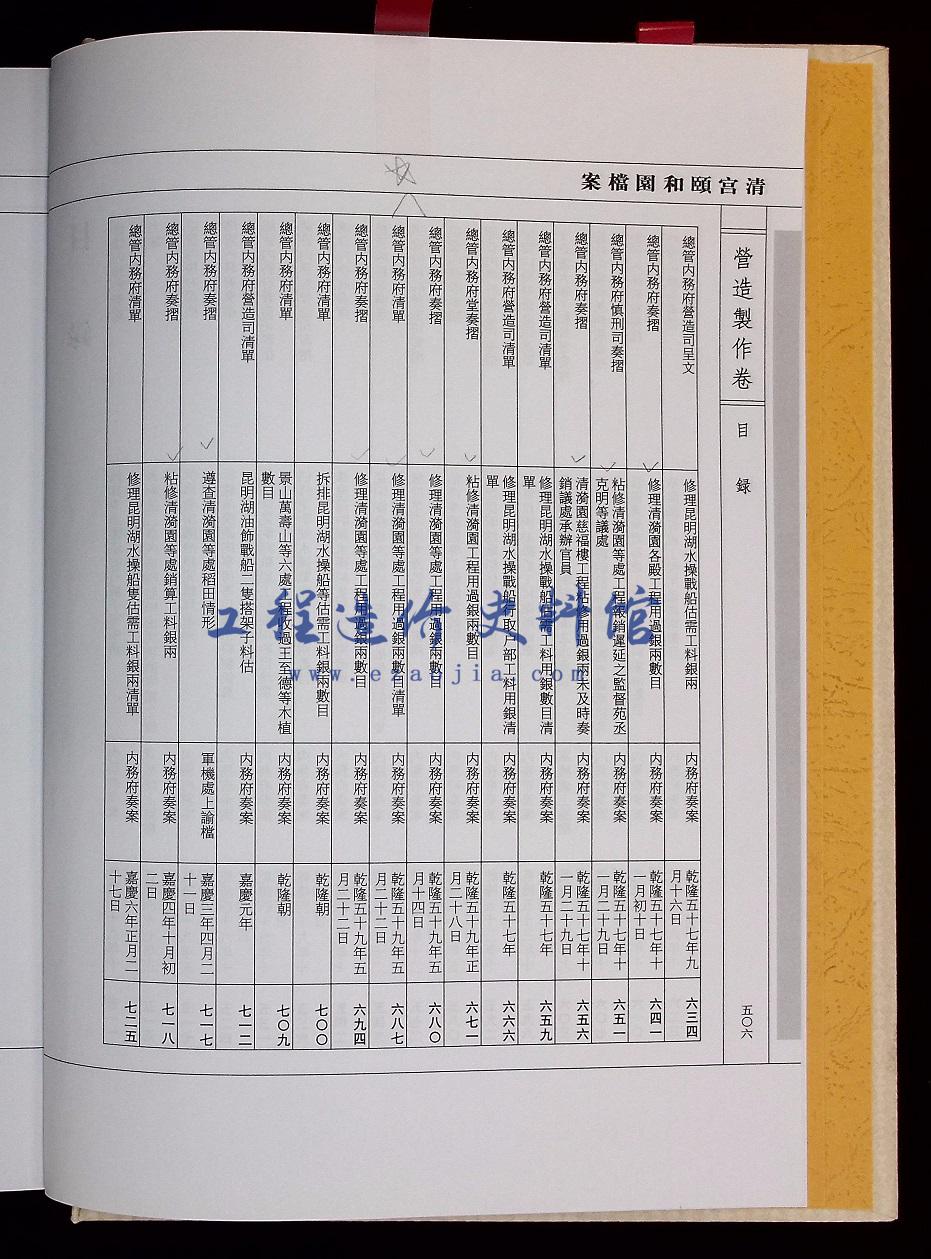 清宮頤和園檔案
營造製作卷
目錄
五〇六
總管内務府營造司呈文
修理昆明湖水操戰船估需工料銀兩
内務府奏案
乾隆五十七年九
月十六日
六三四
總管内務府奏摺
修理清漪園各殿工程用過銀兩數目
内務府奏案
乾隆五十七年十
一月初十日
六四一
總管内務府慎刑司奏摺
粘修清漪園等處工程報銷遲延之監督苑丞
克明等議處
内務府奏案
乾隆五十七年十
一月二十九日
六五一
總管内務府奏摺
清漪園慈福樓工程粘修用過銀兩未及時奏
銷議處承辦官員
内務府奏案
乾隆五十七年十
一月二十九日
六五六
總管内務府營造司清單
修理昆明湖水操戰船估需工料用銀數目清
單
内務府奏案
乾隆五十七年
六五九
總管内務府營造司清單
修理昆明湖水操戰船行取户部工料用銀清
單
内務府奏案
乾隆五十七年
六六六
總管内務府堂奏摺
粘修清漪園工程用過銀兩數目
内務府奏案
乾隆五十九年正
月二十八日
六七一
總管内務府奏摺
修理清漪園等處工程用過銀兩數目
内務府奏案
乾隆五十九年五
月十四日
六八〇
總管内務府清單
修理清漪園等處工程用過銀兩數目清單
内務府奏案
乾隆五十九年五
月二十二日
六八七
總管内務府奏摺
修理清漪園等處工程用過銀兩數目
内務府奏案
乾隆五十九年五
月二十二日
六九四
總管内務府清單
拆排昆明湖水操船等估需工料銀兩數目
内務府奏案
乾隆朝
七〇〇
總管内務府清單
景山萬壽山等六處工程收過王至德等木植
數目
内務府奏案
乾隆朝
七〇九
總管内務府營造司清單
昆明湖油飾戰船二隻搭架子料估
内務府奏案
嘉慶元年
七一二
總管内務府奏摺
遵查清漪園等處稻田情形
軍機處上諭檔
嘉慶三年四月二
十一日
七一七
總管内務府奏摺
粘修清漪園等處銷算工料銀兩
内務府奏案
嘉慶四年十月初
二日
七一八
總管内務府清單
修理昆明湖水操船隻估需工料銀兩清單
内務府奏案
嘉慶六年正月二
十七日
七二五
工程造价史料馆
www.ezaojia.com